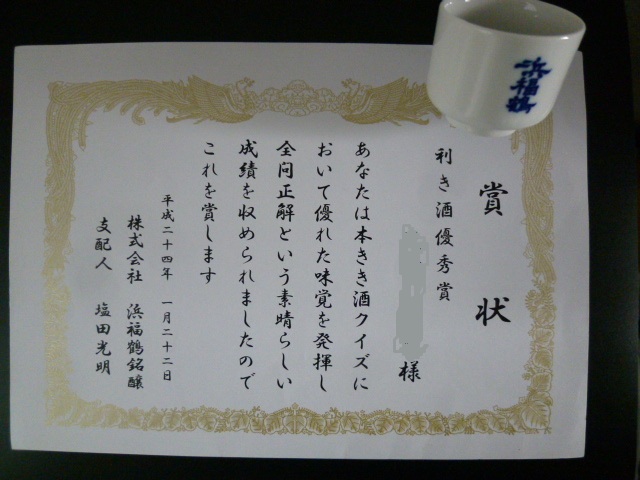 賞状
利き酒優秀賞
様
あなたは本きき酒クイズに
おいて優れた味覚を発揮し
全問正解という素晴らしい
成績を収められましたので
これを賞します
平成二十四年 一月二十二日
株式会社 浜福鶴銘醸
支配人 塩田光明
浜福鶴